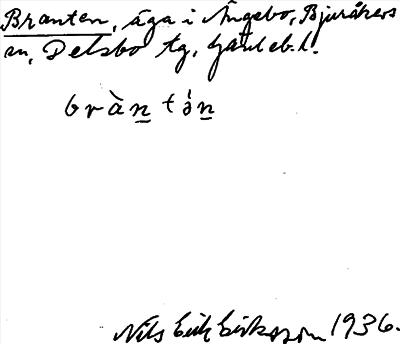 Branten, äga i Ängebo, Bjuråkers
sn, Delsbo tg, Gävleb. l.
bràn tə́n
Nils Erik Eriksson 1936.